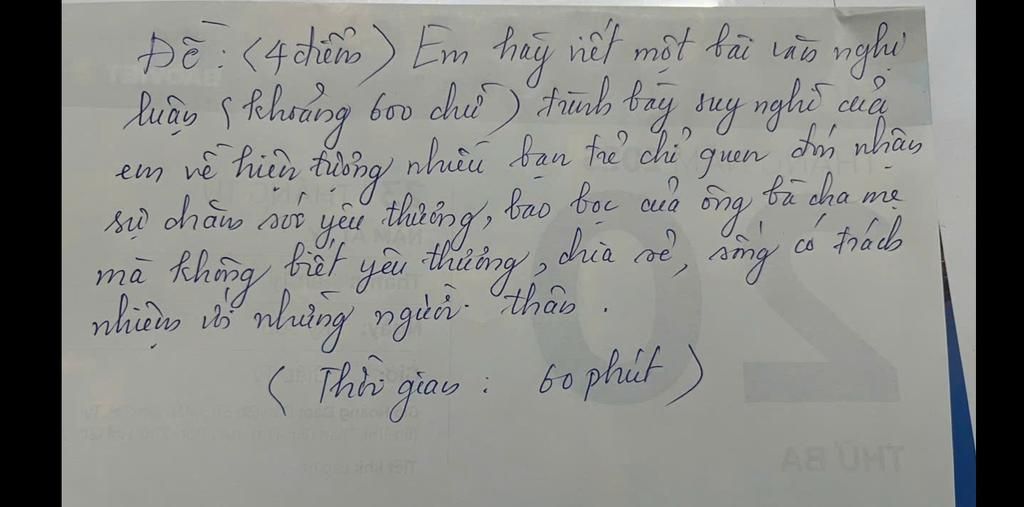 Đề : (4 điểm) Em hãy viết một bài văn nghị
luận (khoảng 600 chữ) trình bày suy nghĩ của
em về hiện tượng nhiều bạn trẻ chỉ quen đón nhận
sự chăm sóc yêu thương, bao bọc của ông bà cha mẹ
mà không biết yêu thương, chia sẻ, sống có trách
nhiệm với những người thân.
(Thời gian : 60 phút)
20
THỨ BA